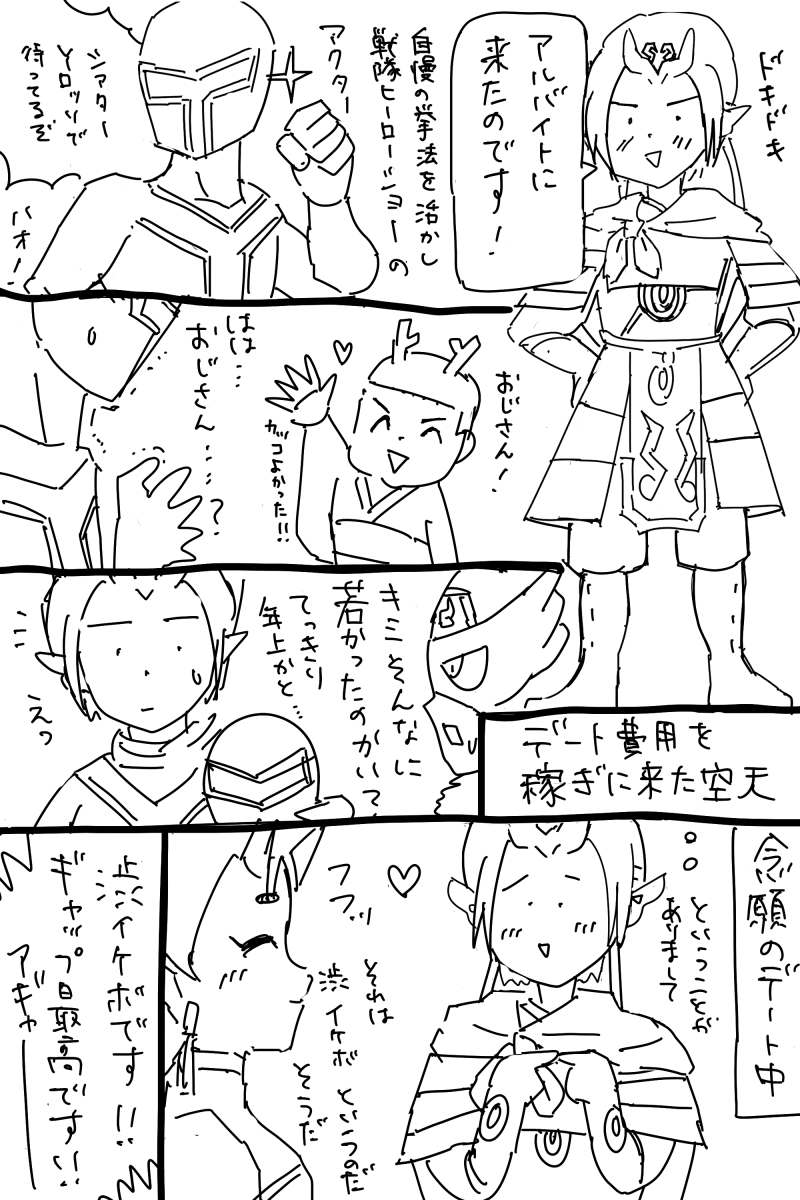 ドキドキ
アルバイトに
来たのです!
自慢の拳法を活かし
戦隊ヒーローショーの
アクター
シアター
Gロッソで
待ってるぞ
ハオ!
デート費用を
稼ぎに来た空天
おじさん!
カッコよかった!!
はは…
おじさん……?
キミそんなに
若かったのかい?
てっきり
年上かと…
えっ
念願のデート中
ということが
ありまして
フフッ
それは
渋イケボ というのだ
そうだ
渋イケボです!!
ギャップ最高です!!
アギャー